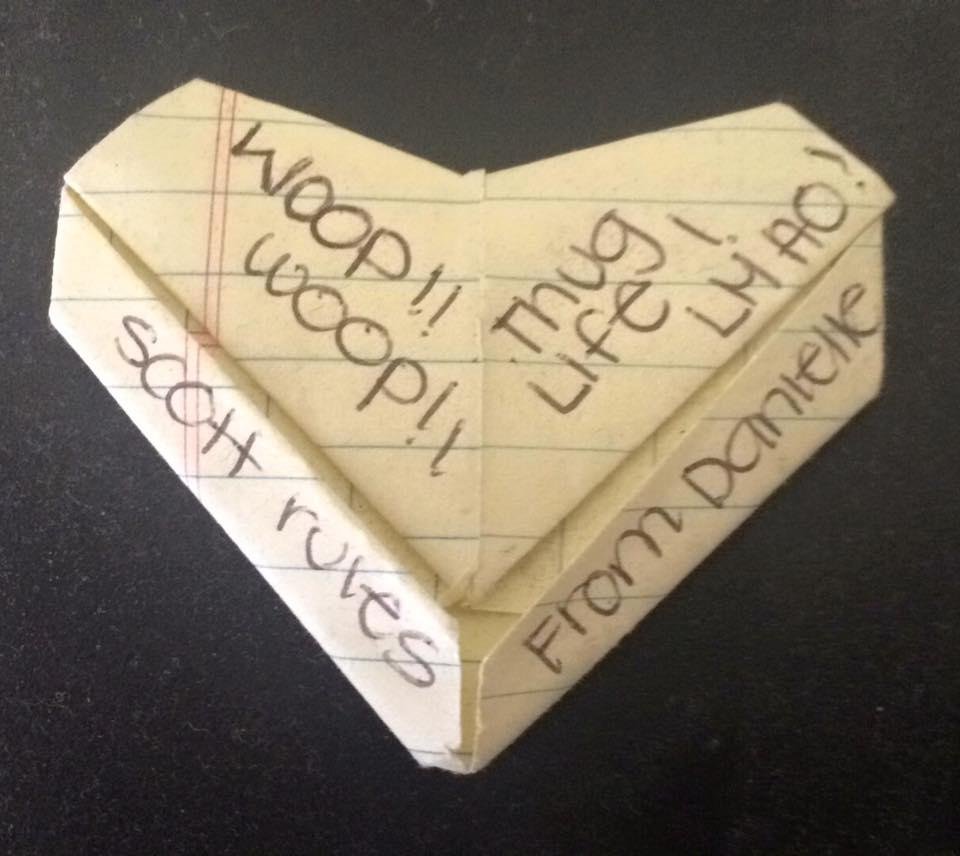 WOOP!!
WOOP!!
Thug
Life!
LMAO!
Scott rules
From Danielle